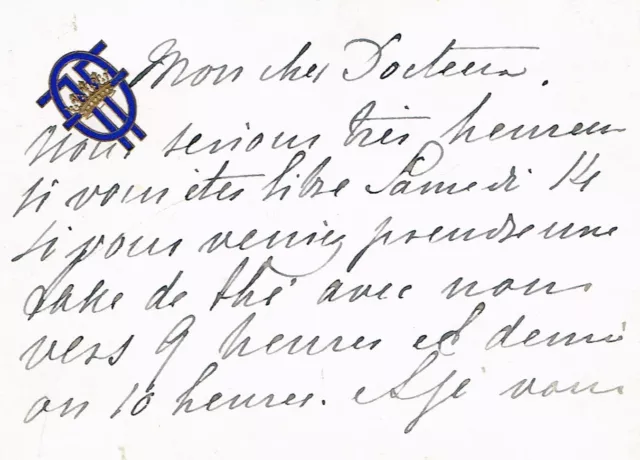 Mon cher Docteur.
Nous serions très heureux
si vous êtes libre Samedi 14
si vous veniez prendre une
take de thé avec nous
vers 9 heures et demi
ou 10 heures. Si je vous